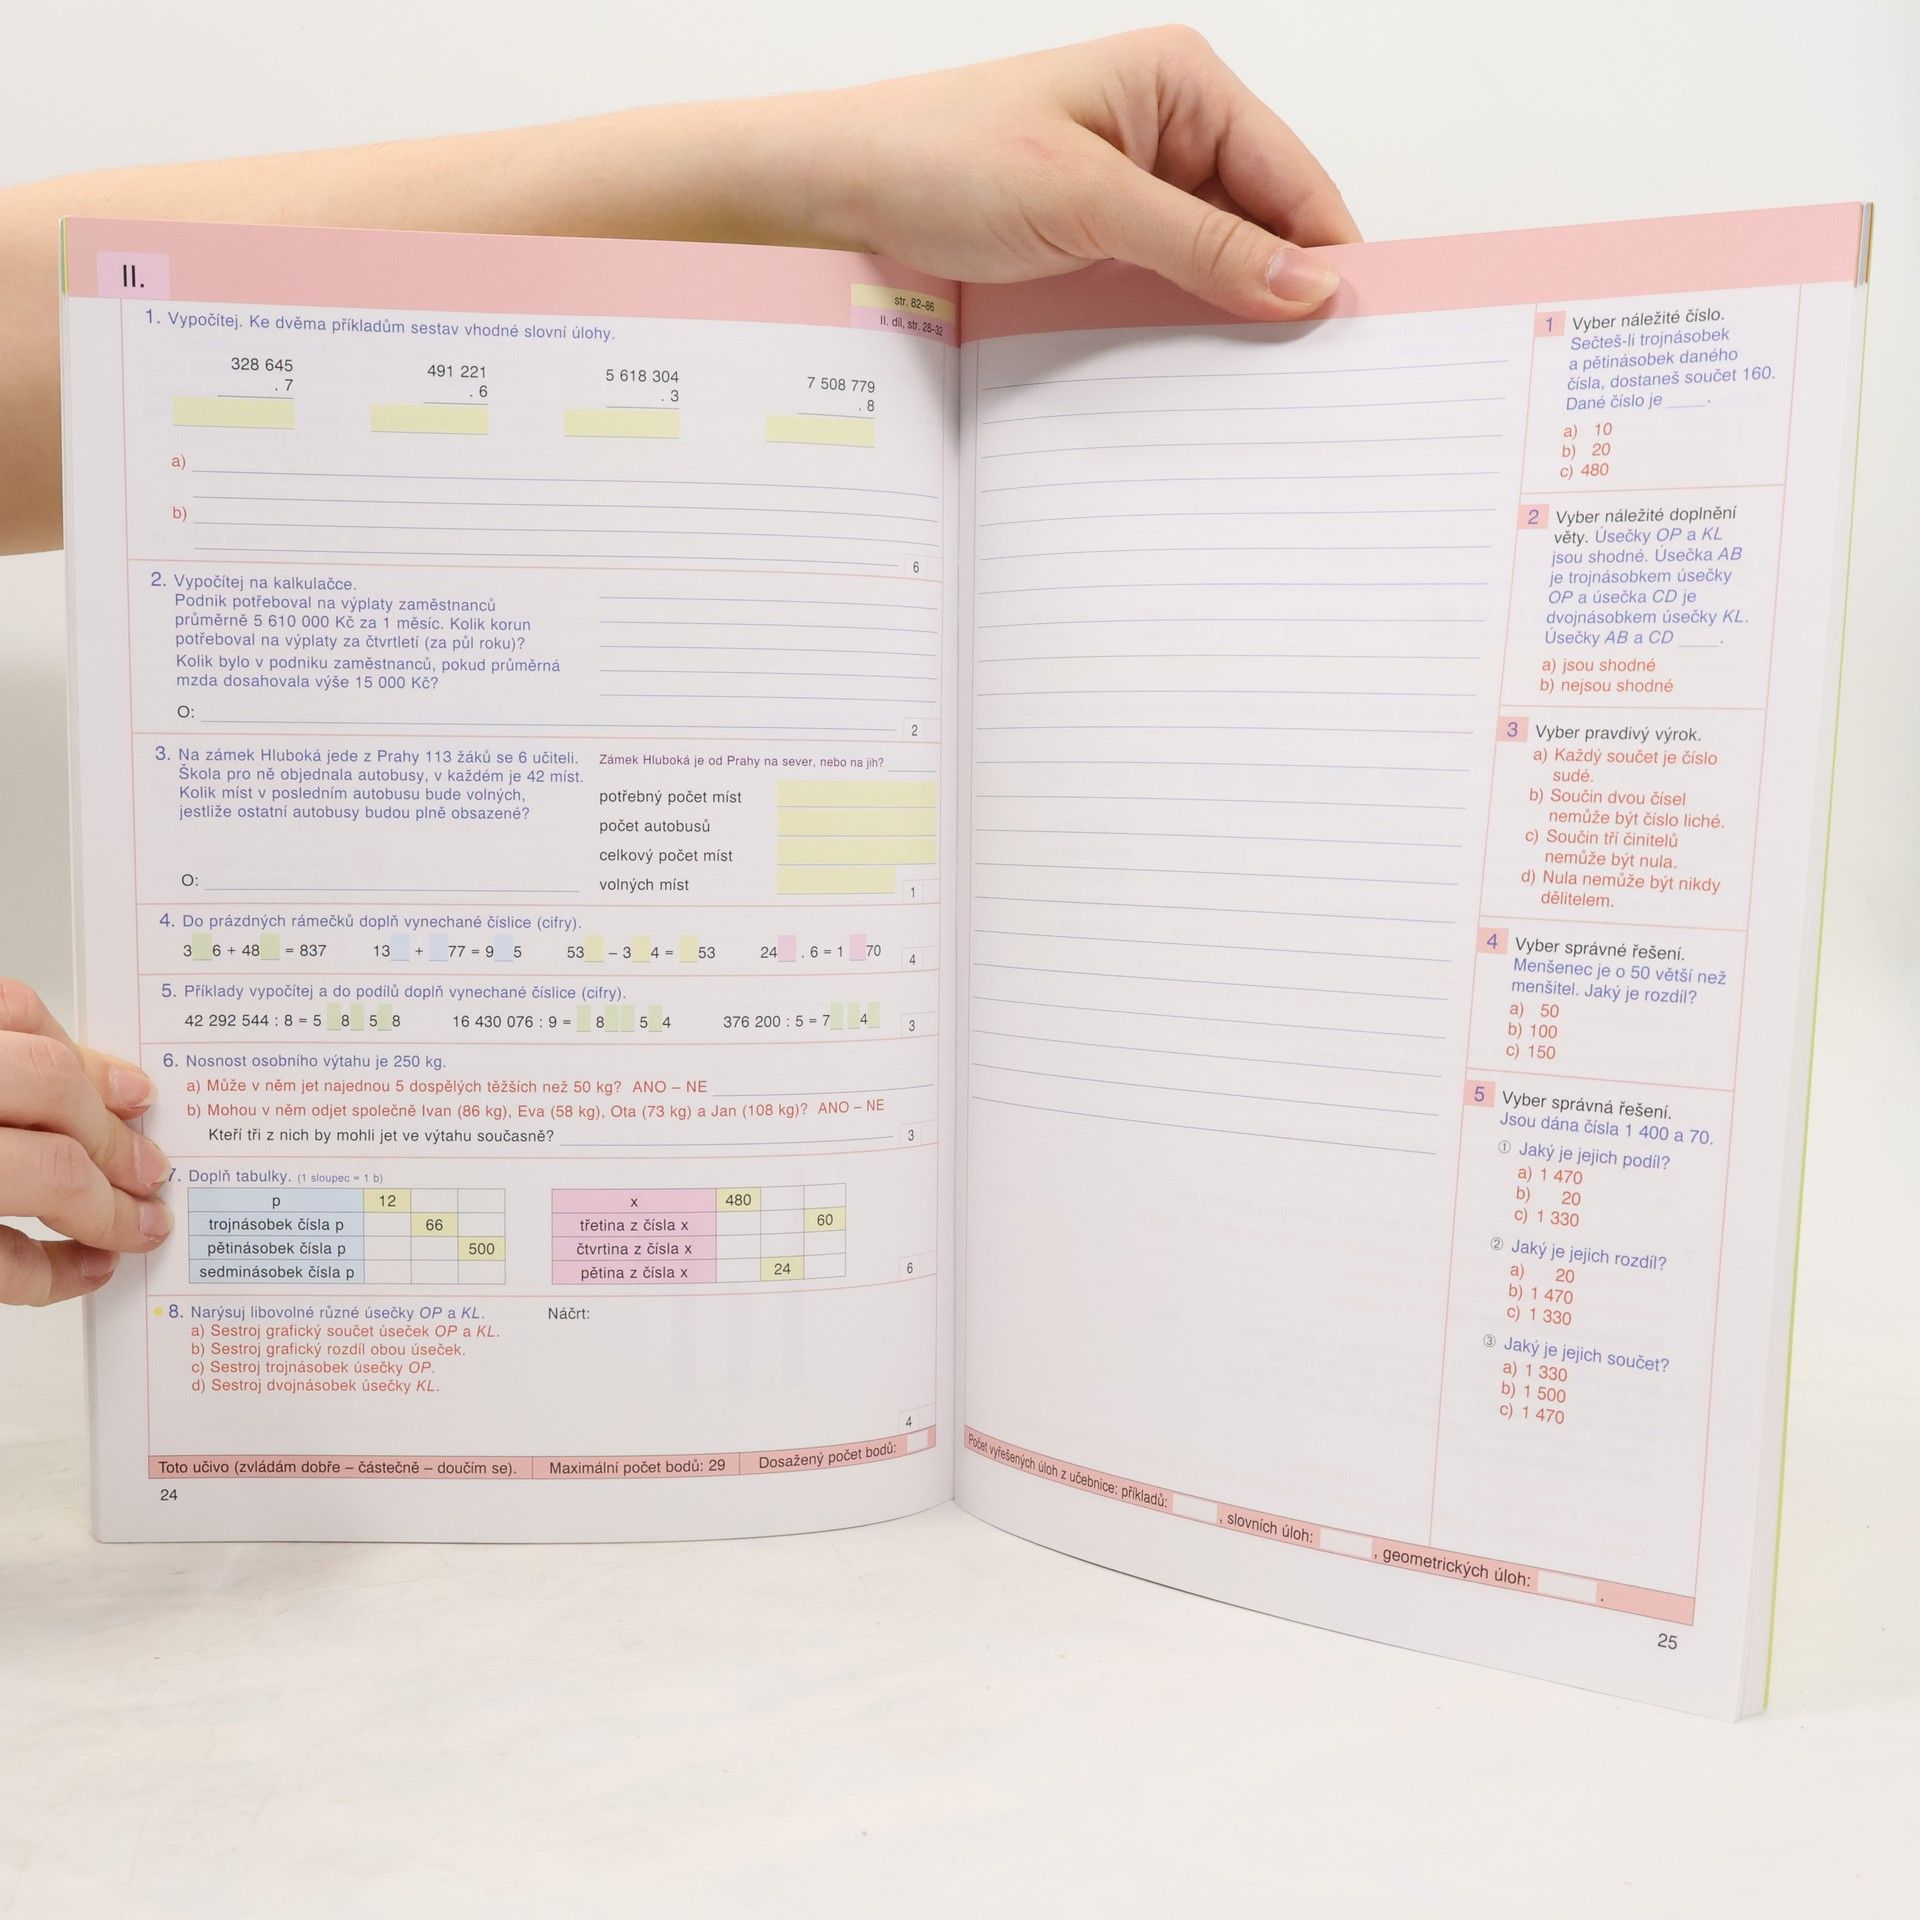 II.
str. 82–86
II. díl, str. 28–32
1. Vypočítej. Ke dvěma příkladům sestav vhodné slovní úlohy.
328 645 491 221 5 618 304 7 508 779
. 7 . 6 . 3 . 8
a)
b)
6
2. Vypočítej na kalkulačce.
Podnik potřeboval na výplaty zaměstnanců
průměrně 5 610 000 Kč za 1 měsíc. Kolik korun
potřeboval na výplaty za čtvrtletí (za půl roku)?
Kolik bylo v podniku zaměstnanců, pokud průměrná
mzda dosahovala výše 15 000 Kč?
O:
2
3. Na zámek Hluboká jede z Prahy 113 žáků se 6 učiteli.
Škola pro ně objednala autobusy, v každém je 42 míst.
Kolik míst v posledním autobusu bude volných,
jestliže ostatní autobusy budou plně obsazené?
O:
Zámek Hluboká je od Prahy na sever, nebo na jih?
potřebný počet míst
počet autobusů
celkový počet míst
volných míst
1
4. Do prázdných rámečků doplň vynechané číslice (cifry).
3 6 + 48 = 837 13 + 77 = 9 5 53 – 3 4 = 53 24 . 6 = 1 70
4
5. Příklady vypočítej a do podílů doplň vynechané číslice (cifry).
42 292 544 : 8 = 5 8 5 8 16 430 076 : 9 = 8 5 4 376 200 : 5 = 7 4
3
6. Nosnost osobního výtahu je 250 kg.
a) Může v něm jet najednou 5 dospělých těžších než 50 kg? ANO – NE
b) Mohou v něm odjet společně Ivan (86 kg), Eva (58 kg), Ota (73 kg) a Jan (108 kg)? ANO – NE
Kteří tři z nich by mohli jet ve výtahu současně?
3
7. Doplň tabulky. (1 sloupec = 1 b)
p 12
trojnásobek čísla p 66
pětinásobek čísla p 500
sedminásobek čísla p
x 480
třetina z čísla x 60
čtvrtina z čísla x
pětina z čísla x 24
6
8. Narýsuj libovolné různé úsečky OP a KL.
a) Sestroj grafický součet úseček OP a KL.
b) Sestroj grafický rozdíl obou úseček.
c) Sestroj trojnásobek úsečky OP.
d) Sestroj dvojnásobek úsečky KL.
Náčrt:
4
Toto učivo (zvládám dobře – částečně – doučím se). Maximální počet bodů: 29 Dosažený počet bodů:
24
1 Vyber náležité číslo.
Sečteš-li trojnásobek
a pětinásobek daného
čísla, dostaneš součet 160.
Dané číslo je ____.
a) 10
b) 20
c) 480
2 Vyber náležité doplnění
věty. Úsečky OP a KL
jsou shodné. Úsečka AB
je trojnásobkem úsečky
OP a úsečka CD je
dvojnásobkem úsečky KL.
Úsečky AB a CD ____.
a) jsou shodné
b) nejsou shodné
3 Vyber pravdivý výrok.
a) Každý součet je číslo
sudé.
b) Součin dvou čísel
nemůže být číslo liché.
c) Součin tří činitelů
nemůže být nula.
d) Nula nemůže být nikdy
dělitelem.
4 Vyber správné řešení.
Menšenec je o 50 větší než
menšitel. Jaký je rozdíl?
a) 50
b) 100
c) 150
5 Vyber správná řešení.
Jsou dána čísla 1 400 a 70.
① Jaký je jejich podíl?
a) 1 470
b) 20
c) 1 330
② Jaký je jejich rozdíl?
a) 20
b) 1 470
c) 1 330
③ Jaký je jejich součet?
a) 1 330
b) 1 500
c) 1 470
Počet vyřešených úloh z učebnice: příkladů: , slovních úloh: , geometrických úloh: .
25